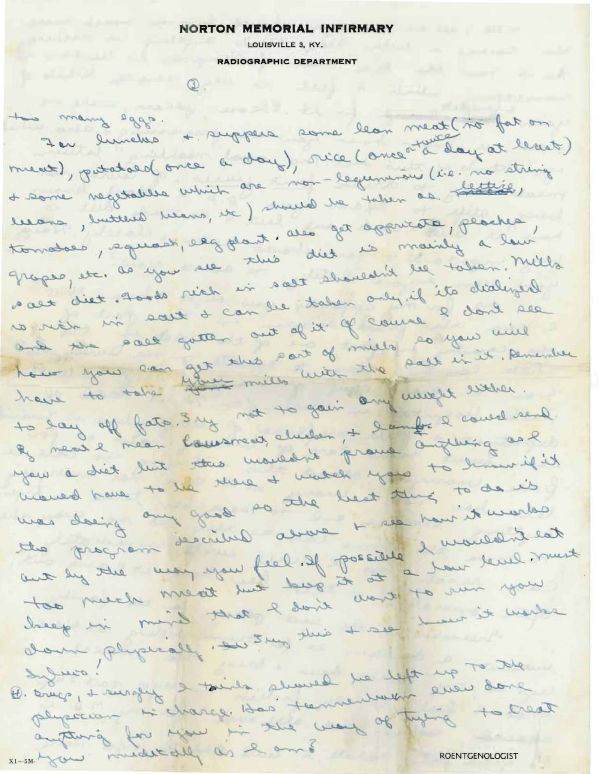 NORTON MEMORIAL INFIRMARY
LOUISVILLE 3, KY.
RADIOGRAPHIC DEPARTMENT
too many eggs.
For lunches & suppers some lean meat (no fat on
meat), potatoes (once a day), rice (once or twice a day at least)
& some vegetables which are non-leguminous (i.e. no string
beans, buttered beans, etc) should be taken as lettuce,
tomatoes, squash, egg plant. Also get appricots, peaches,
grapes, etc. As you see this diet is mainly a low
salt diet. Foods rich in salt shouldn't be taken. Milk
is rich in salt & can be taken only if its dialized
and the salt gotten out of it. Of course I don't see
how you can get this sort of milk so you will
have to take milk with the salt in it. Remember
to lay off fats. Try not to gain any weight either.
By meat I mean chicken, & lamb. I could send
you a diet but this wouldn't prove anything as I
would have to be there & watch you to know if it
was doing any good so the best thing to do is
the program described above & see how it works
out by the way you feel. If possible I wouldn't eat
too much meat but keep it at a low level. Must
keep in mind that I don't want to run you
down physically. Try this & see how it works
Sylvia!
Drugs, & surgery I think should be left up to the
physician in charge. Has Tannenbaum ever done
anything for you in the way of trying to treat
you medically as I am?
X1-5M
ROENTGENOLOGIST